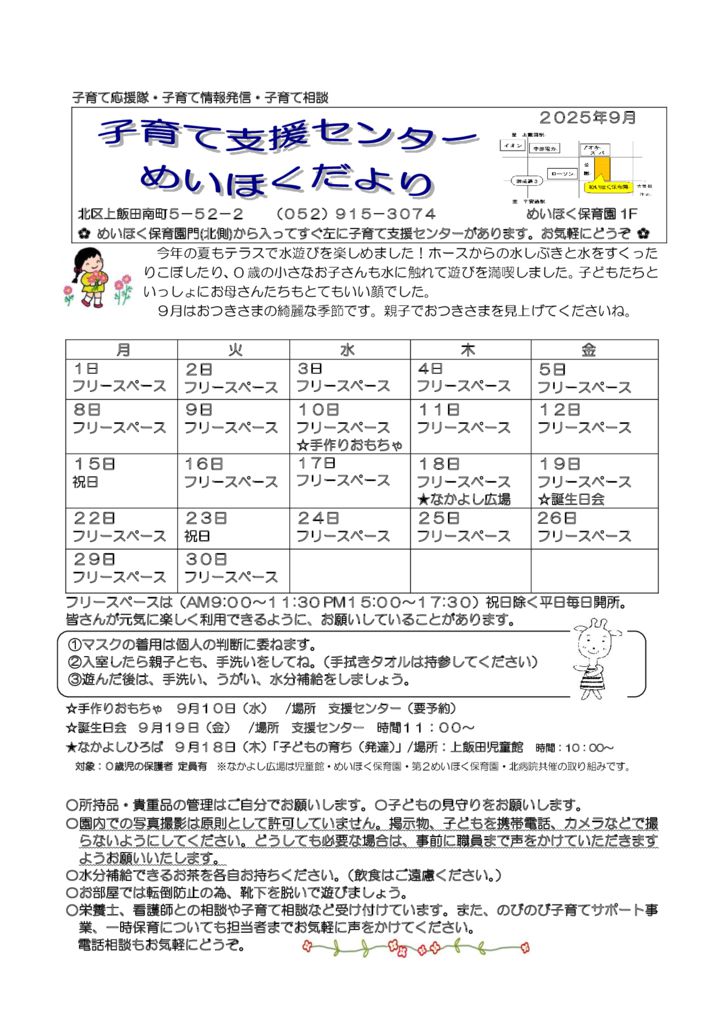 子育て応援隊・子育て情報発信・子育て相談
2025年9月
子育て支援センター
めいほくだより
至 上飯田駅
イオン
中部電力
アオキスーパー
公園
ローソン
めいほく保育園
北区上飯田南町5－52－2 （052）915－3074 めいほく保育園 1F
✿ めいほく保育園門(北側)から入ってすぐ左に子育て支援センターがあります。お気軽にどうぞ ✿
今年の夏もテラスで水遊びを楽しめました！ホースからの水しぶきと水をすくった
りこぼしたり、0歳の小さなお子さんも水に触れて遊びを満喫しました。子どもたちと
いっしょにお母さんたちもとてもいい顔でした。
9月はおつきさまの綺麗な季節です。親子でおつきさまを見上げてくださいね。
月 火 水 木 金
1日 2日 3日 4日 5日
フリースペース フリースペース フリースペース フリースペース フリースペース
8日 9日 10日 11日 12日
フリースペース フリースペース フリースペース フリースペース フリースペース
☆手作りおもちゃ
15日 16日 17日 18日 19日
祝日 フリースペース フリースペース フリースペース フリースペース
★なかよし広場 ☆誕生日会
22日 23日 24日 25日 26日
フリースペース 祝日 フリースペース フリースペース フリースペース
29日 30日
フリースペース フリースペース
フリースペースは（AM9:00～11:30 PM15:00～17:30）祝日除く平日毎日開所。
皆さんが元気に楽しく利用できるように、お願いしていることがあります。
①マスクの着用は個人の判断に委ねます。
②入室したら親子とも、手洗いをしてね。（手拭きタオルは持参してください）
③遊んだ後は、手洗い、うがい、水分補給をしましょう。
☆手作りおもちゃ 9月10日（水） /場所 支援センター（要予約）
☆誕生日会 9月19日（金） /場所 支援センター 時間11：00～
★なかよしひろば 9月18日（木）「子どもの育ち（発達）」/場所：上飯田児童館 時間：10：00～
対象：0歳児の保護者 定員有 ※なかよし広場は児童館・めいほく保育園・第2めいほく保育園・北病院共催の取り組みです。
○所持品・貴重品の管理はご自分でお願いします。○子どもの見守りをお願いします。
○園内での写真撮影は原則として許可していません。掲示物、子どもを携帯電話、カメラなどで撮
らないようにしてください。どうしても必要な場合は、事前に職員まで声をかけていただきます
ようお願いいたします。
○水分補給できるお茶を各自お持ちください。（飲食はご遠慮ください。）
○お部屋では転倒防止の為、靴下を脱いで遊びましょう。
○栄養士、看護師との相談や子育て相談など受け付けています。また、のびのび子育てサポート事
業、一時保育についても担当者までお気軽に声をかけてください。
電話相談もお気軽にどうぞ。